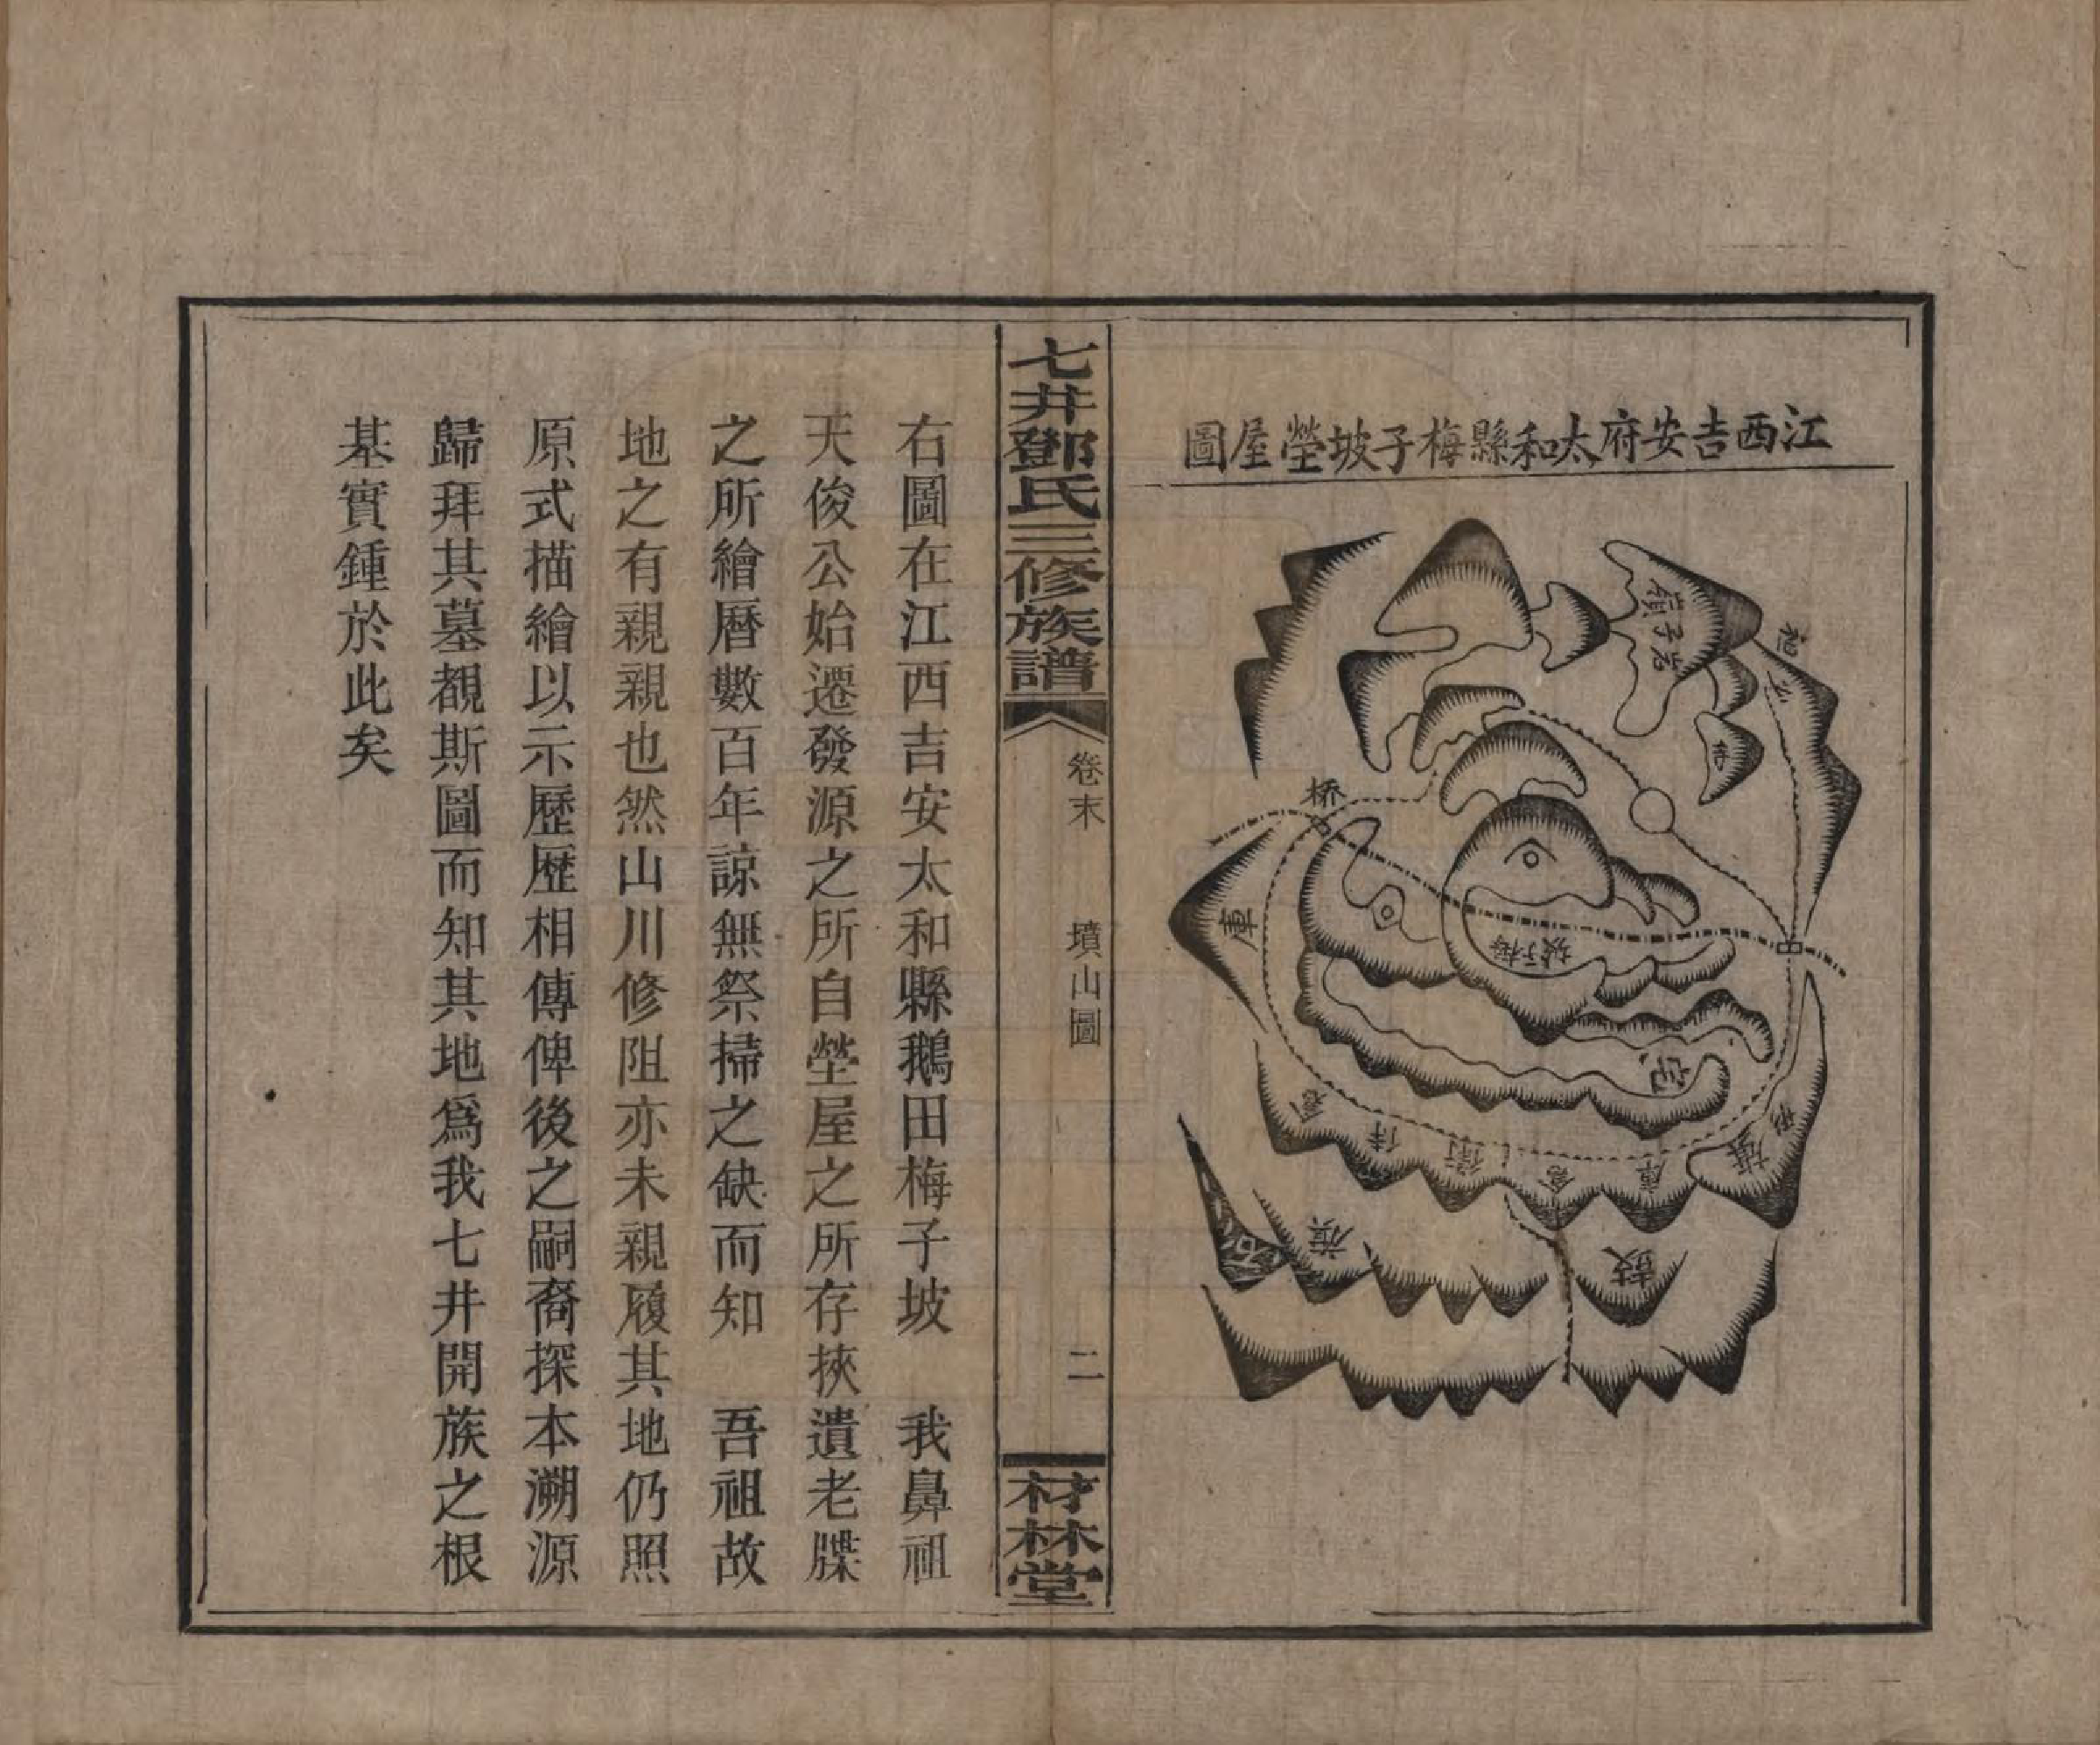 江西吉安府太和縣梅子坡塋屋圖
嶺子岩
橋
庫
梅子坡
宅
倉
侍
衛
倉
庫
旗
旗
鼓
七井鄧氏三修族譜
卷末
墳山圖
二
材林堂
右圖在江西吉安太和縣鵝田梅子坡　我鼻祖
天俊公始遷發源之所自塋屋之所存挾遺老牒
之所繪曆數百年諒無祭掃之缺而知　吾祖故
地之有親親也然山川修阻亦未親履其地仍照
原式描繪以示歷歷相傳俾後之嗣裔探本溯源
歸拜其墓覩斯圖而知其地爲我七井開族之根
基實鍾於此矣